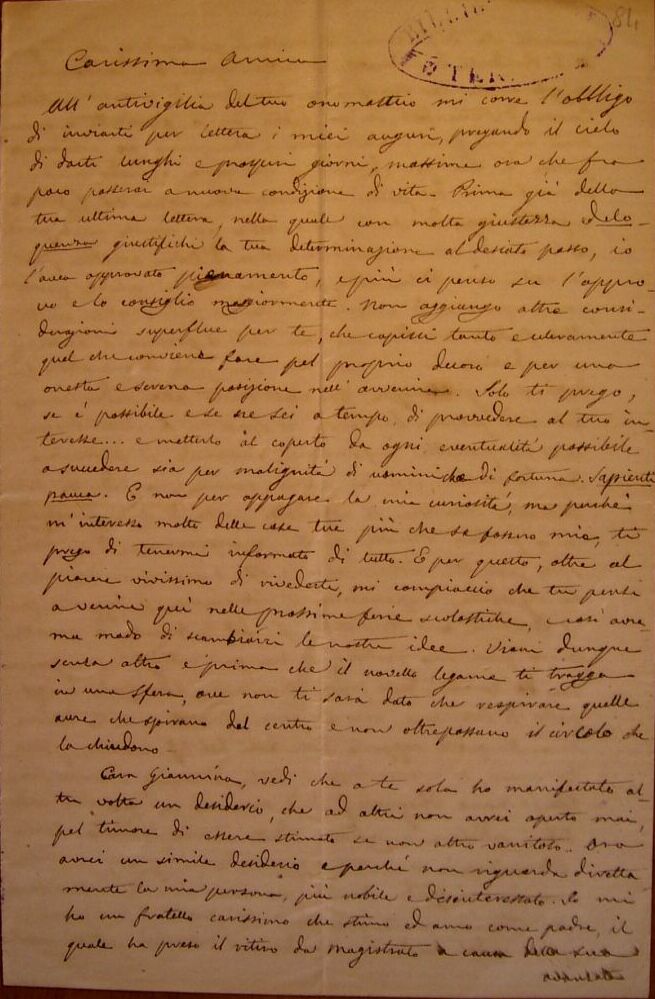 81.
Carissima Amica
All'antivigilia del tuo onomastico mi corre l'obbligo
di inviarti per lettera i miei auguri, pregando il cielo
di darti lunghi e prosperi giorni, massime ora che fra
poco passerai a nuova condizione di vita. Prima già della
tua ultima lettera, nella quale con molta giustezza ed elo-
quenza giustifichi la tua determinazione al desiato passo, io
l'avea approvato pienamente, e più ci penso su l'appro-
vo e lo consiglio maggiormente. Non aggiungo altre consi-
derazioni superflue per te, che capisci tanto
quel che conviene fare pel proprio decoro e per una
onesta e serena posizione nell'avvenire. Solo ti prego,
se è possibile e se ne sei a tempo, di provvedere al tuo in-
teresse... e metterlo al coperto da ogni eventualità possibile
a succedere sia per malignità di uomini che di fortuna. Sapienti
pauca. E non per appagare la mia curiosità, ma perchè
m'interesso molto delle cose tue più che se fossero mie, ti
prego di tenermi informato di tutto. E per questo, oltre al
piacere vivissimo di vederti, mi compiaccio che tu pensi
a venire quì nelle prossime ferie scolastiche, e così avre-
mo modo di scambiarci le nostre idee. Vieni dunque
senza altro e prima che il novello legame ti tragga
in una sfera, ove non ti sarà dato che respirare quelle
aure che spirano dal centro e non oltrepassano il circolo che
la chiudono.
Cara Giannina, vedi che a te sola ho manifestato al-
tra volta un desiderio, che ad altri non avrei aperto mai,
pel timore di essere stimato se non altro vanitoso. Ora
avrei un simile desiderio e perchè non riguarda diretta
mente la mia persona, più nobile e disinteressato. Io mi
ho un fratello carissimo che stimo ed amo come padre, il
quale ha preso il ritiro da magistrato a causa della sua
avanzata